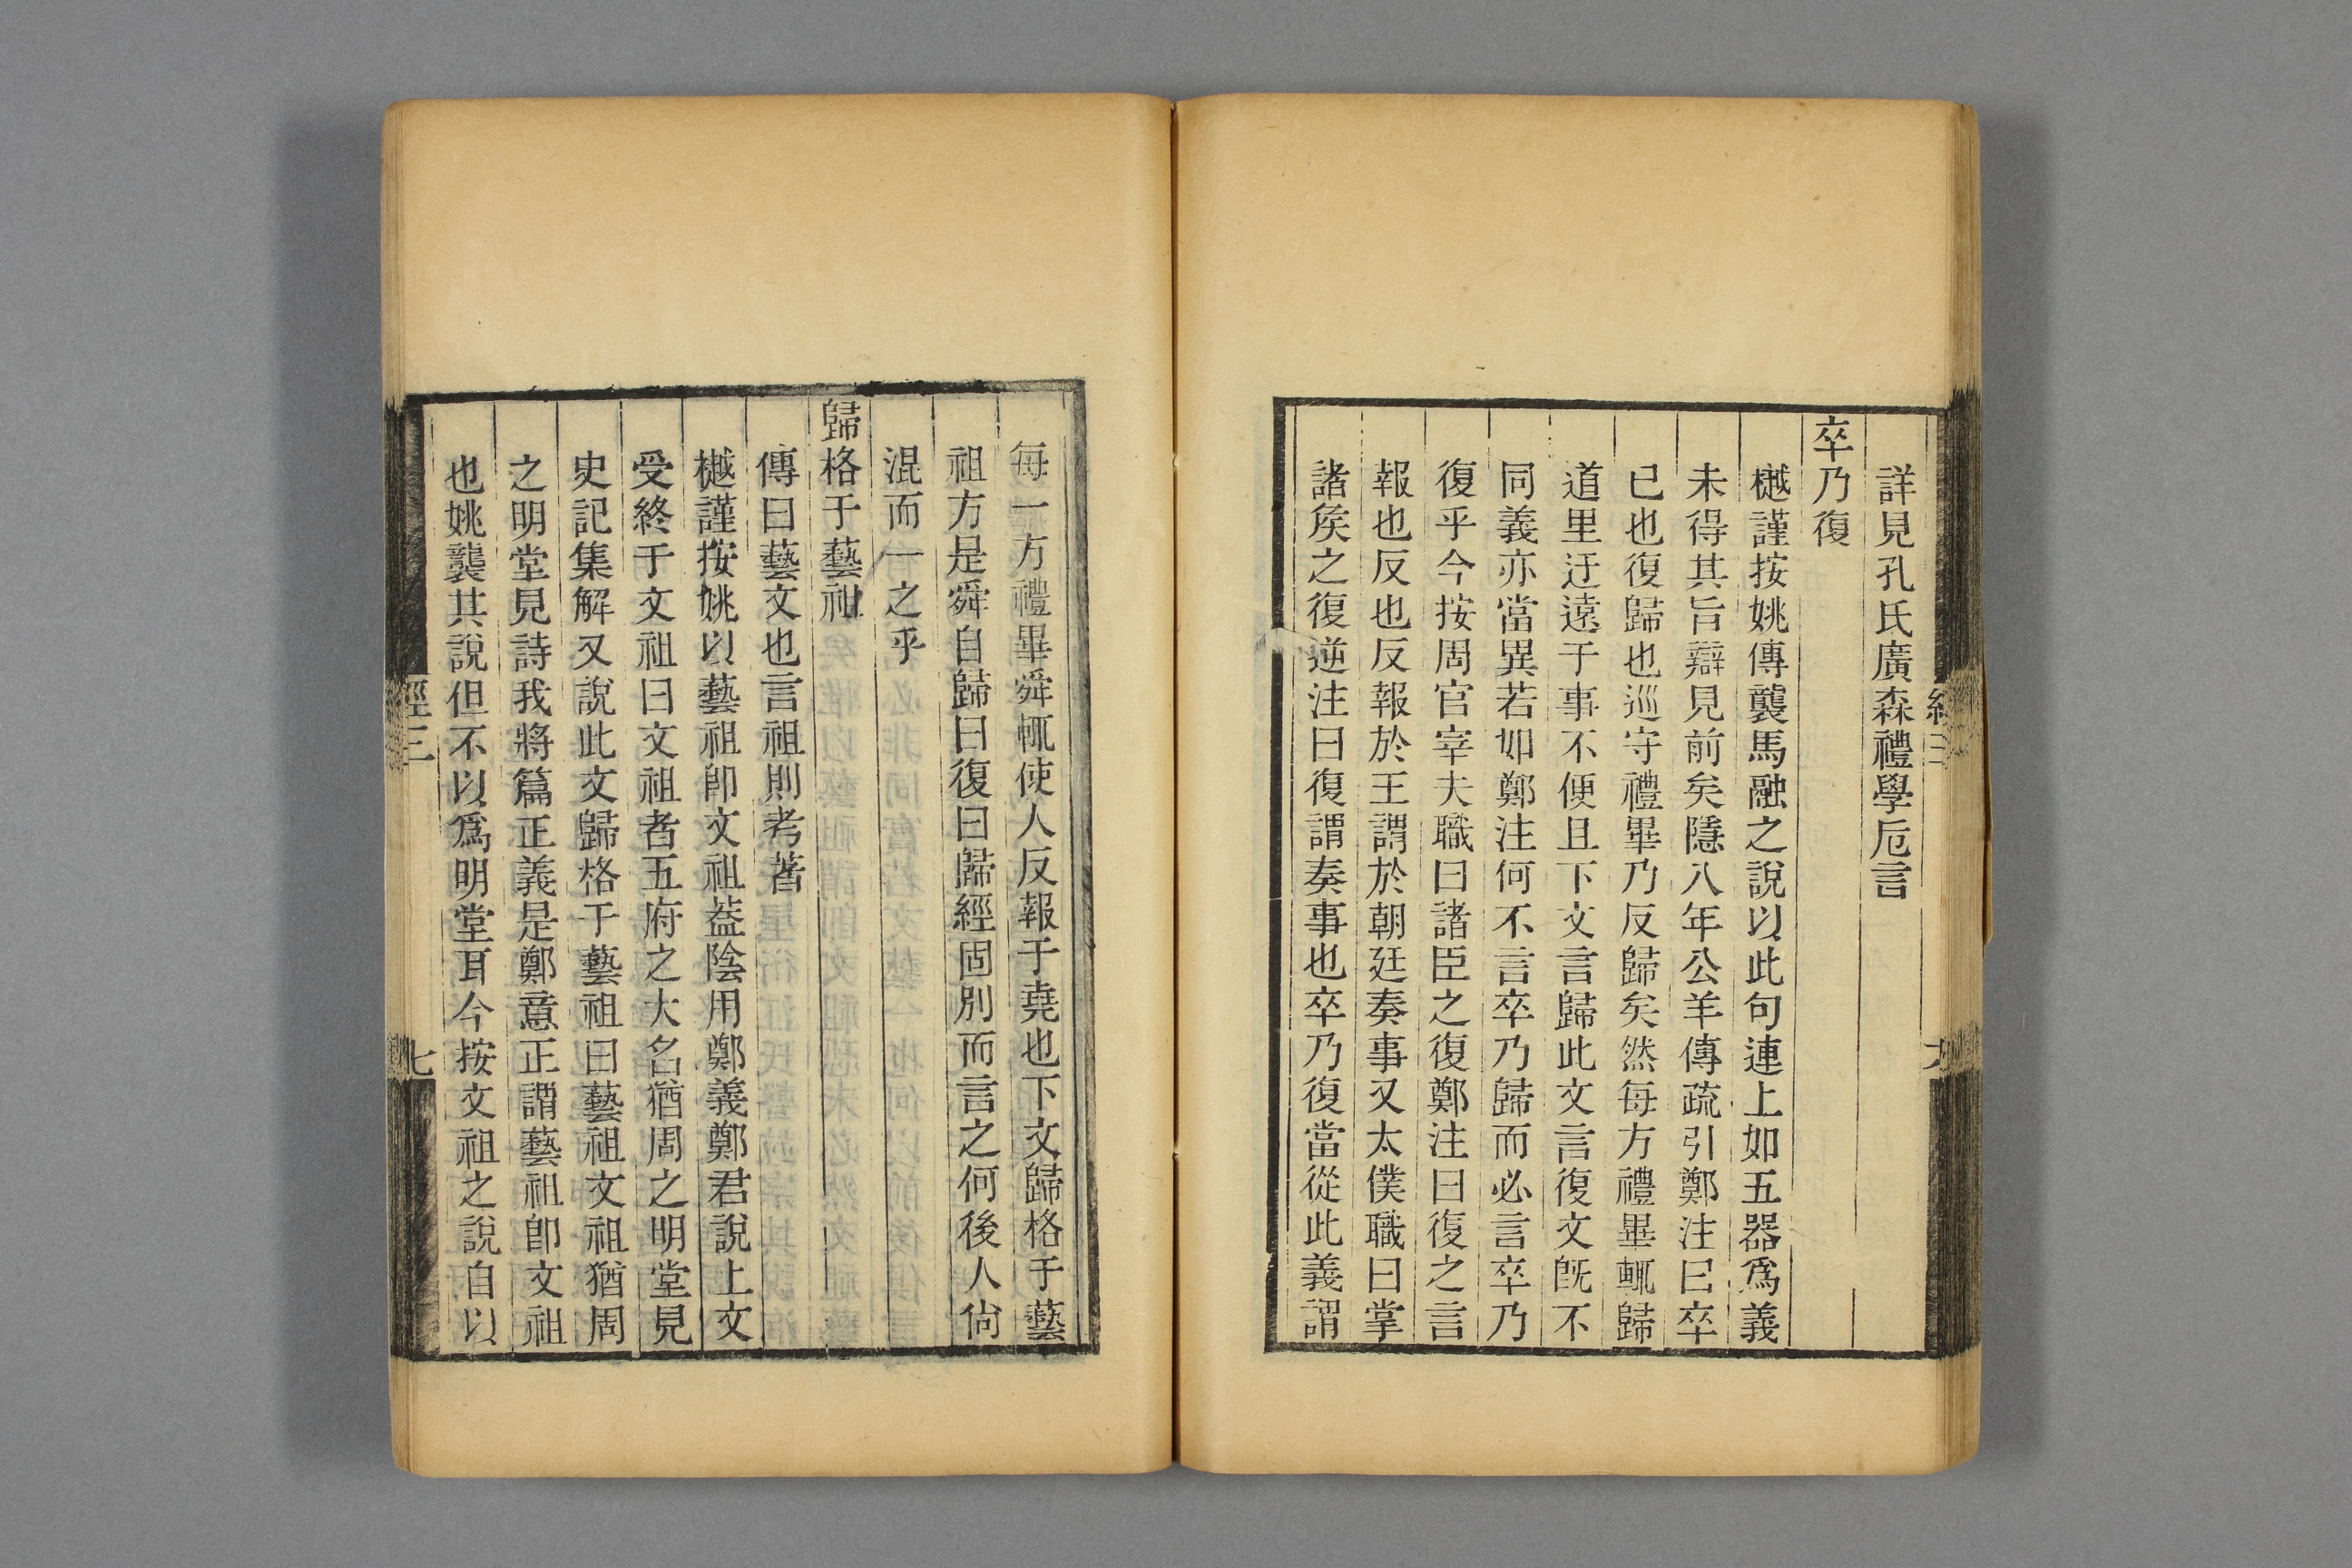 詳見孔氏廣森禮學卮言
卒乃復
樾謹按姚傳襲馬融之說以此句連上如五器爲義
未得其旨辯見前矣隱八年公羊傳疏引鄭注曰卒
已也復歸也巡守禮畢乃反歸矣然每方禮畢輒歸
道里迂遠于事不便且下文言歸此文言復文旣不
同義亦當異若如鄭注何不言卒乃歸而必言卒乃
復乎今按周官宰夫職曰諸臣之復鄭注曰復之言
報也反也反報於王謂於朝廷奏事又太僕職曰掌
諸矦之復逆注曰復謂奏事也卒乃復當從此義謂
每一方禮畢舜輒使人反報于堯也下文歸格于藝
祖方是舜自歸曰復曰歸經固別而言之何後人尙
混而一之乎
歸格于藝祖
傳曰藝文也言祖則考著
樾謹按姚以藝祖卽文祖葢陰用鄭義鄭君說上文
受終于文祖曰文祖者五府之大名猶周之明堂見
史記集解又說此文歸格于藝祖曰藝祖文祖猶周
之明堂見詩我將篇正義是鄭意正謂藝祖卽文祖
也姚襲其說但不以爲明堂耳今按文祖之說自以
經三
七